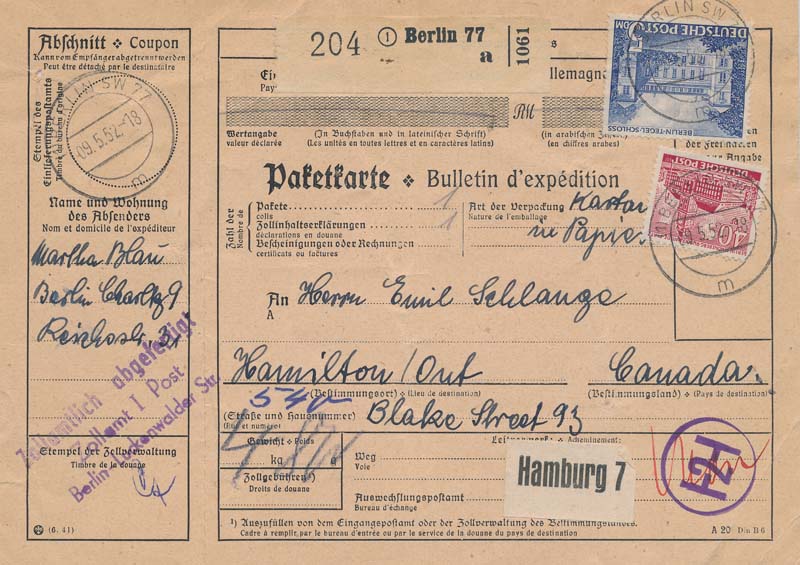 Abschnitt ❖ Coupon
Kann vom Empfänger abgetrennt werden
Peut être détaché par le destinataire
Stempel des
Einlieferungspostamts
Timbre du bureau d'origine
BERLIN SW 77
09.5.52.-18
m
Name und Wohnung
des Absenders
Nom et domicile de l'expéditeur
Martha Blau
Berlin Charltg 9
Reichsstr. 3
Zollamtlich abgefertigt
Zollamt I Post
Berlin, Luckenwalder Str.
Stempel der Zollverwaltung
Timbre de la douane
(6. 41)
204 1 Berlin 77
a
1061
llemagne
RM
Wertangabe
valeur déclarée
(In Buchstaben und in lateinischer Schrift)
(Les unités en toutes lettres et en caractères latins)
(in arabischen
(en chiffres arabes)
der Freimachung
zur Angabe
DEUTSCHE POST
DM
BERLIN-TEGEL · SCHLOSS
BERLIN SW
DEUTSCHE POST
40
m
Paketkarte ❖ Bulletin d'expédition
Zahl der
Nombre de
Pakete
colis
1
Zollinhaltserklärungen
déclarations en douane
1
Bescheinigungen oder Rechnungen
certificats ou factures
Art der Verpackung
Nature de l'emballage
Karton
in Papier
An
A
Herrn Emil Schlange
Hamilton/Ont Canada.
(Bestimmungsort) (Lieu de destination)
(Bestimmungsland) (Pays de destination)
540
(Straße und Hausnummer)
(Rue et numéro)
Blake Street 93
Gewicht Poids
kg
g
Leitvermerk Acheminement:
Weg
Voie
Hamburg 7
H2
Zollgebühren¹)
Droits de douane
Auswechslungspostamt
Bureau d'échange
¹) Auszufüllen von dem Eingangspostamt oder der Zollverwaltung des Bestimmungslandes.
Cadre à remplir par le bureau d'entrée ou par le service de la douane du pays de destination
A 20 Din B 6